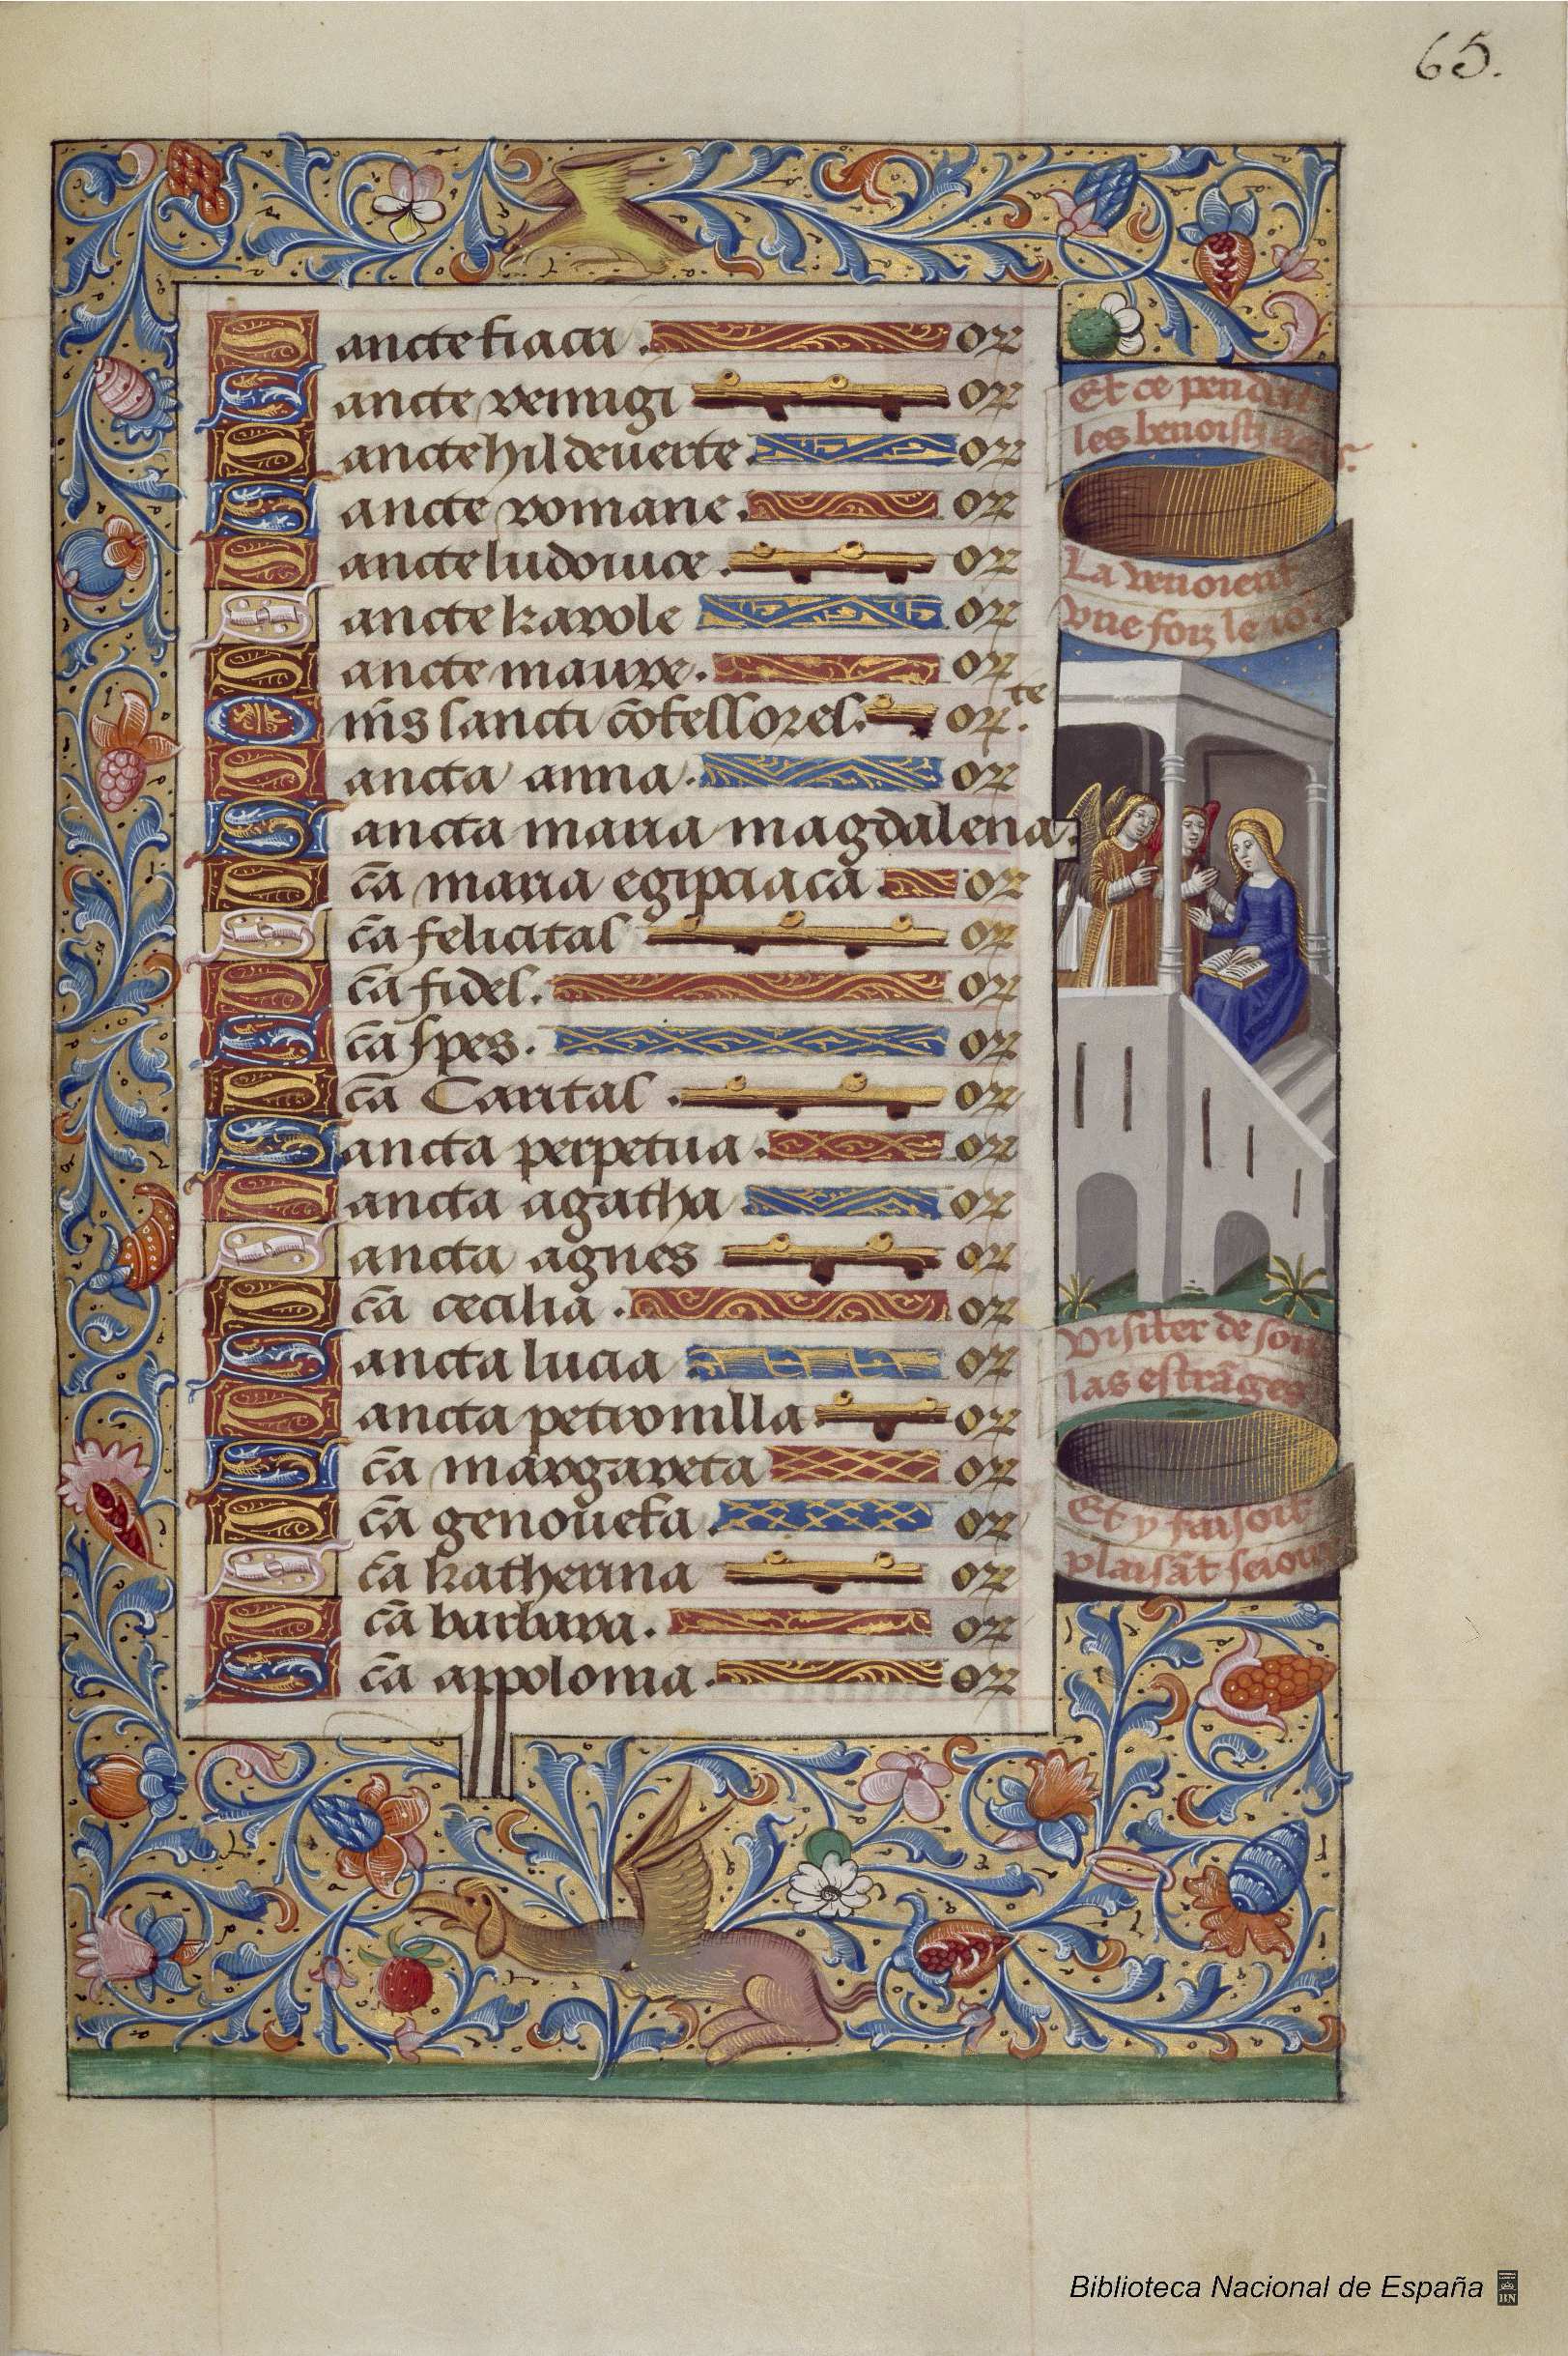 65.
Sancte fiacri. or
Sancte remigi or
Sancte hildeuerte. or
Sancte romane. or
Sancte ludouice. or
Sancte karole or
Sancte maure. or
Om̄s sancti cōfessores. or.te
Sancta anna. or
Sancta maria magdalena.
Sc̄a maria egipciaca. or
Sc̄a felicitas or
Sc̄a fides. or
Sc̄a spes. or
Sc̄a Caritas. or
Sancta perpetua. or
Sancta agatha or
Sancta agnes or
Sc̄a cecilia. or
Sancta lucia or
Sancta petronilla. or
Sc̄a margareta or
Sc̄a genouefa. or
Sc̄a katherina or
Sc̄a barbara. or
Sc̄a appolonia. or
Et ce pendant
les benoistz
La venoient
vne foiz le io
Visiter de son
las estrāges
Et y faisoit
plaisāt seiour
Biblioteca Nacional de España
BN